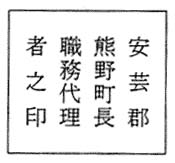 安芸郡
熊野町長
職務代理
者之印